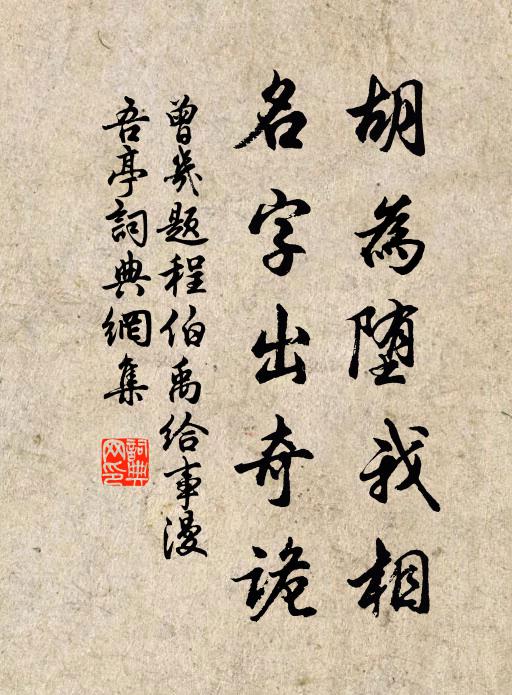 胡為堕我相
名字出奇詭
曾幾題程伯禹給事漫
吾亭詞典網集
詞典網印